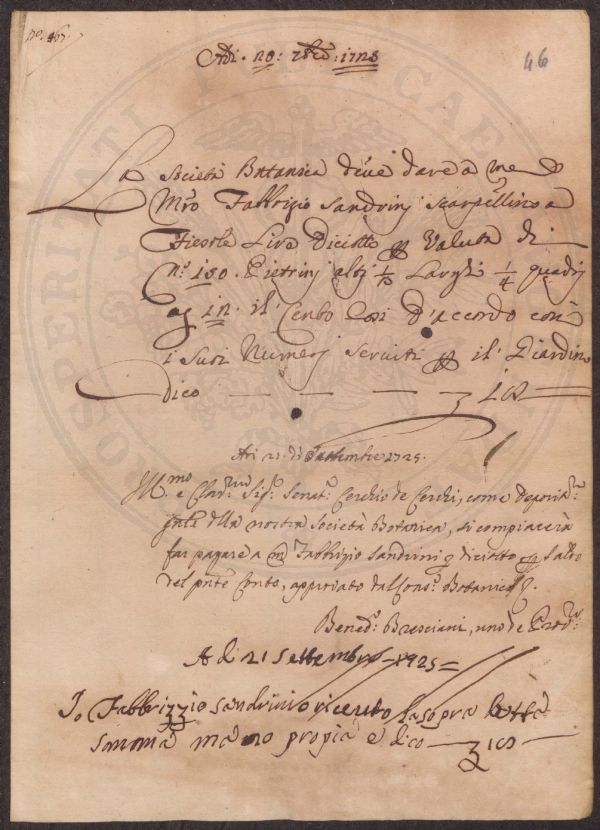 No. 467.
46
Adi. 20: 7bre: 1725
La Società Botanica deve dare a me
Mro Fabbrizio Sandrinj Scarpellino a
Fiesole Lire Diciotto p Valuta di
No. 150. Pietrinj Larghi 1/4 quadrj
il Cento Così D'accordo con
i Suoi Numerj Serviti p il Giardino
dico — — — — 18
Adi 21. di Settembre 1725.
Il.mo e Clar.mo Sig.r Senat.r Cerchio de Cerchi, come deposita:
della nostra Società Botanica, si compiacerà
far pagare a Mro Fabbrizio Sandrini diciotto p saldo
del pnte Conto, approvato dal Cons.o Botanico
Bened.o Bresciani, uno de Prov.ri
A di 21 Settembre 1725
Io Fabbrizzio Sandrini o riceuto la sopra detta
somma mano propia e dico — 18
PROSPERITATI PUBLICAE